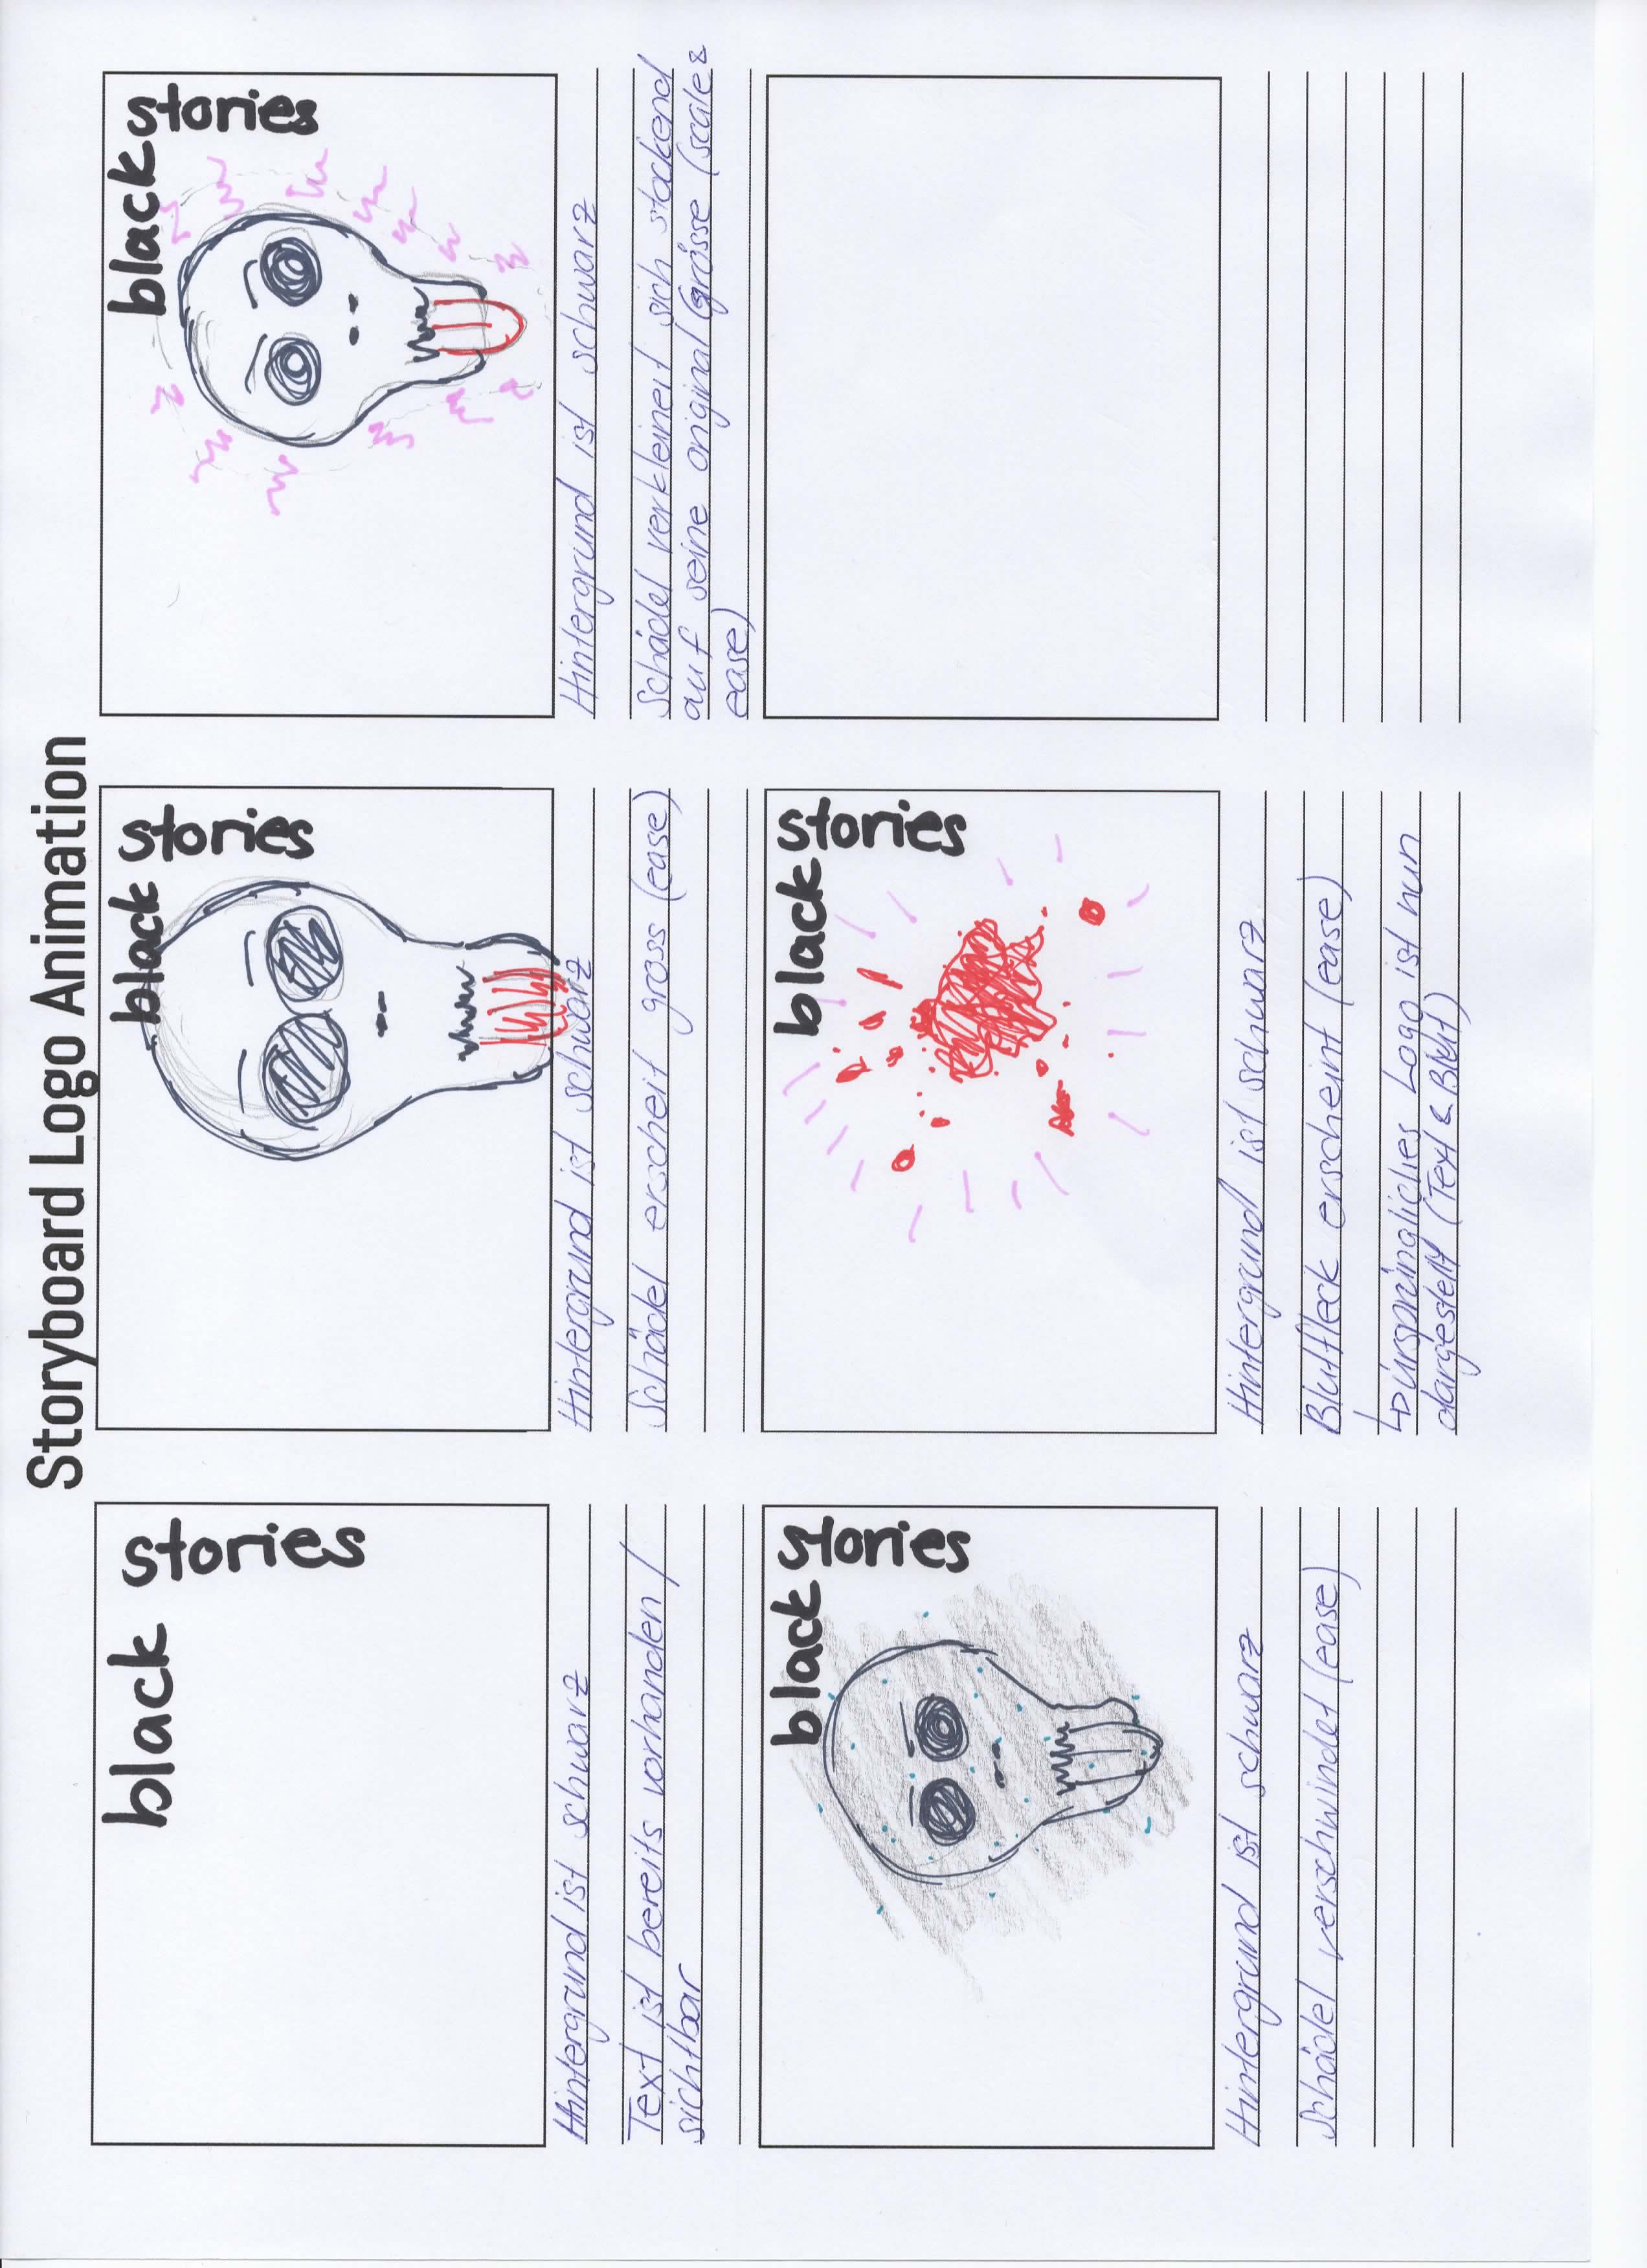 Storyboard Logo Animation
black
stories
Hintergrund ist schwarz
Text ist bereits vorhanden /
sichtbar
black
stories
Hintergrund ist schwarz
Schädel erscheit gross (ease)
black
stories
Hintergrund ist schwarz
Schädel verkleinert sich stockend
auf seine original grösse (scale &
ease)
black
stories
Hintergrund ist schwarz
Schädel verschwindet (ease)
black
stories
Hintergrund ist schwarz
Blutfleck erscheint (ease)
↳ ursprüngliches Logo ist nun
dargestellt (Text & Blut)